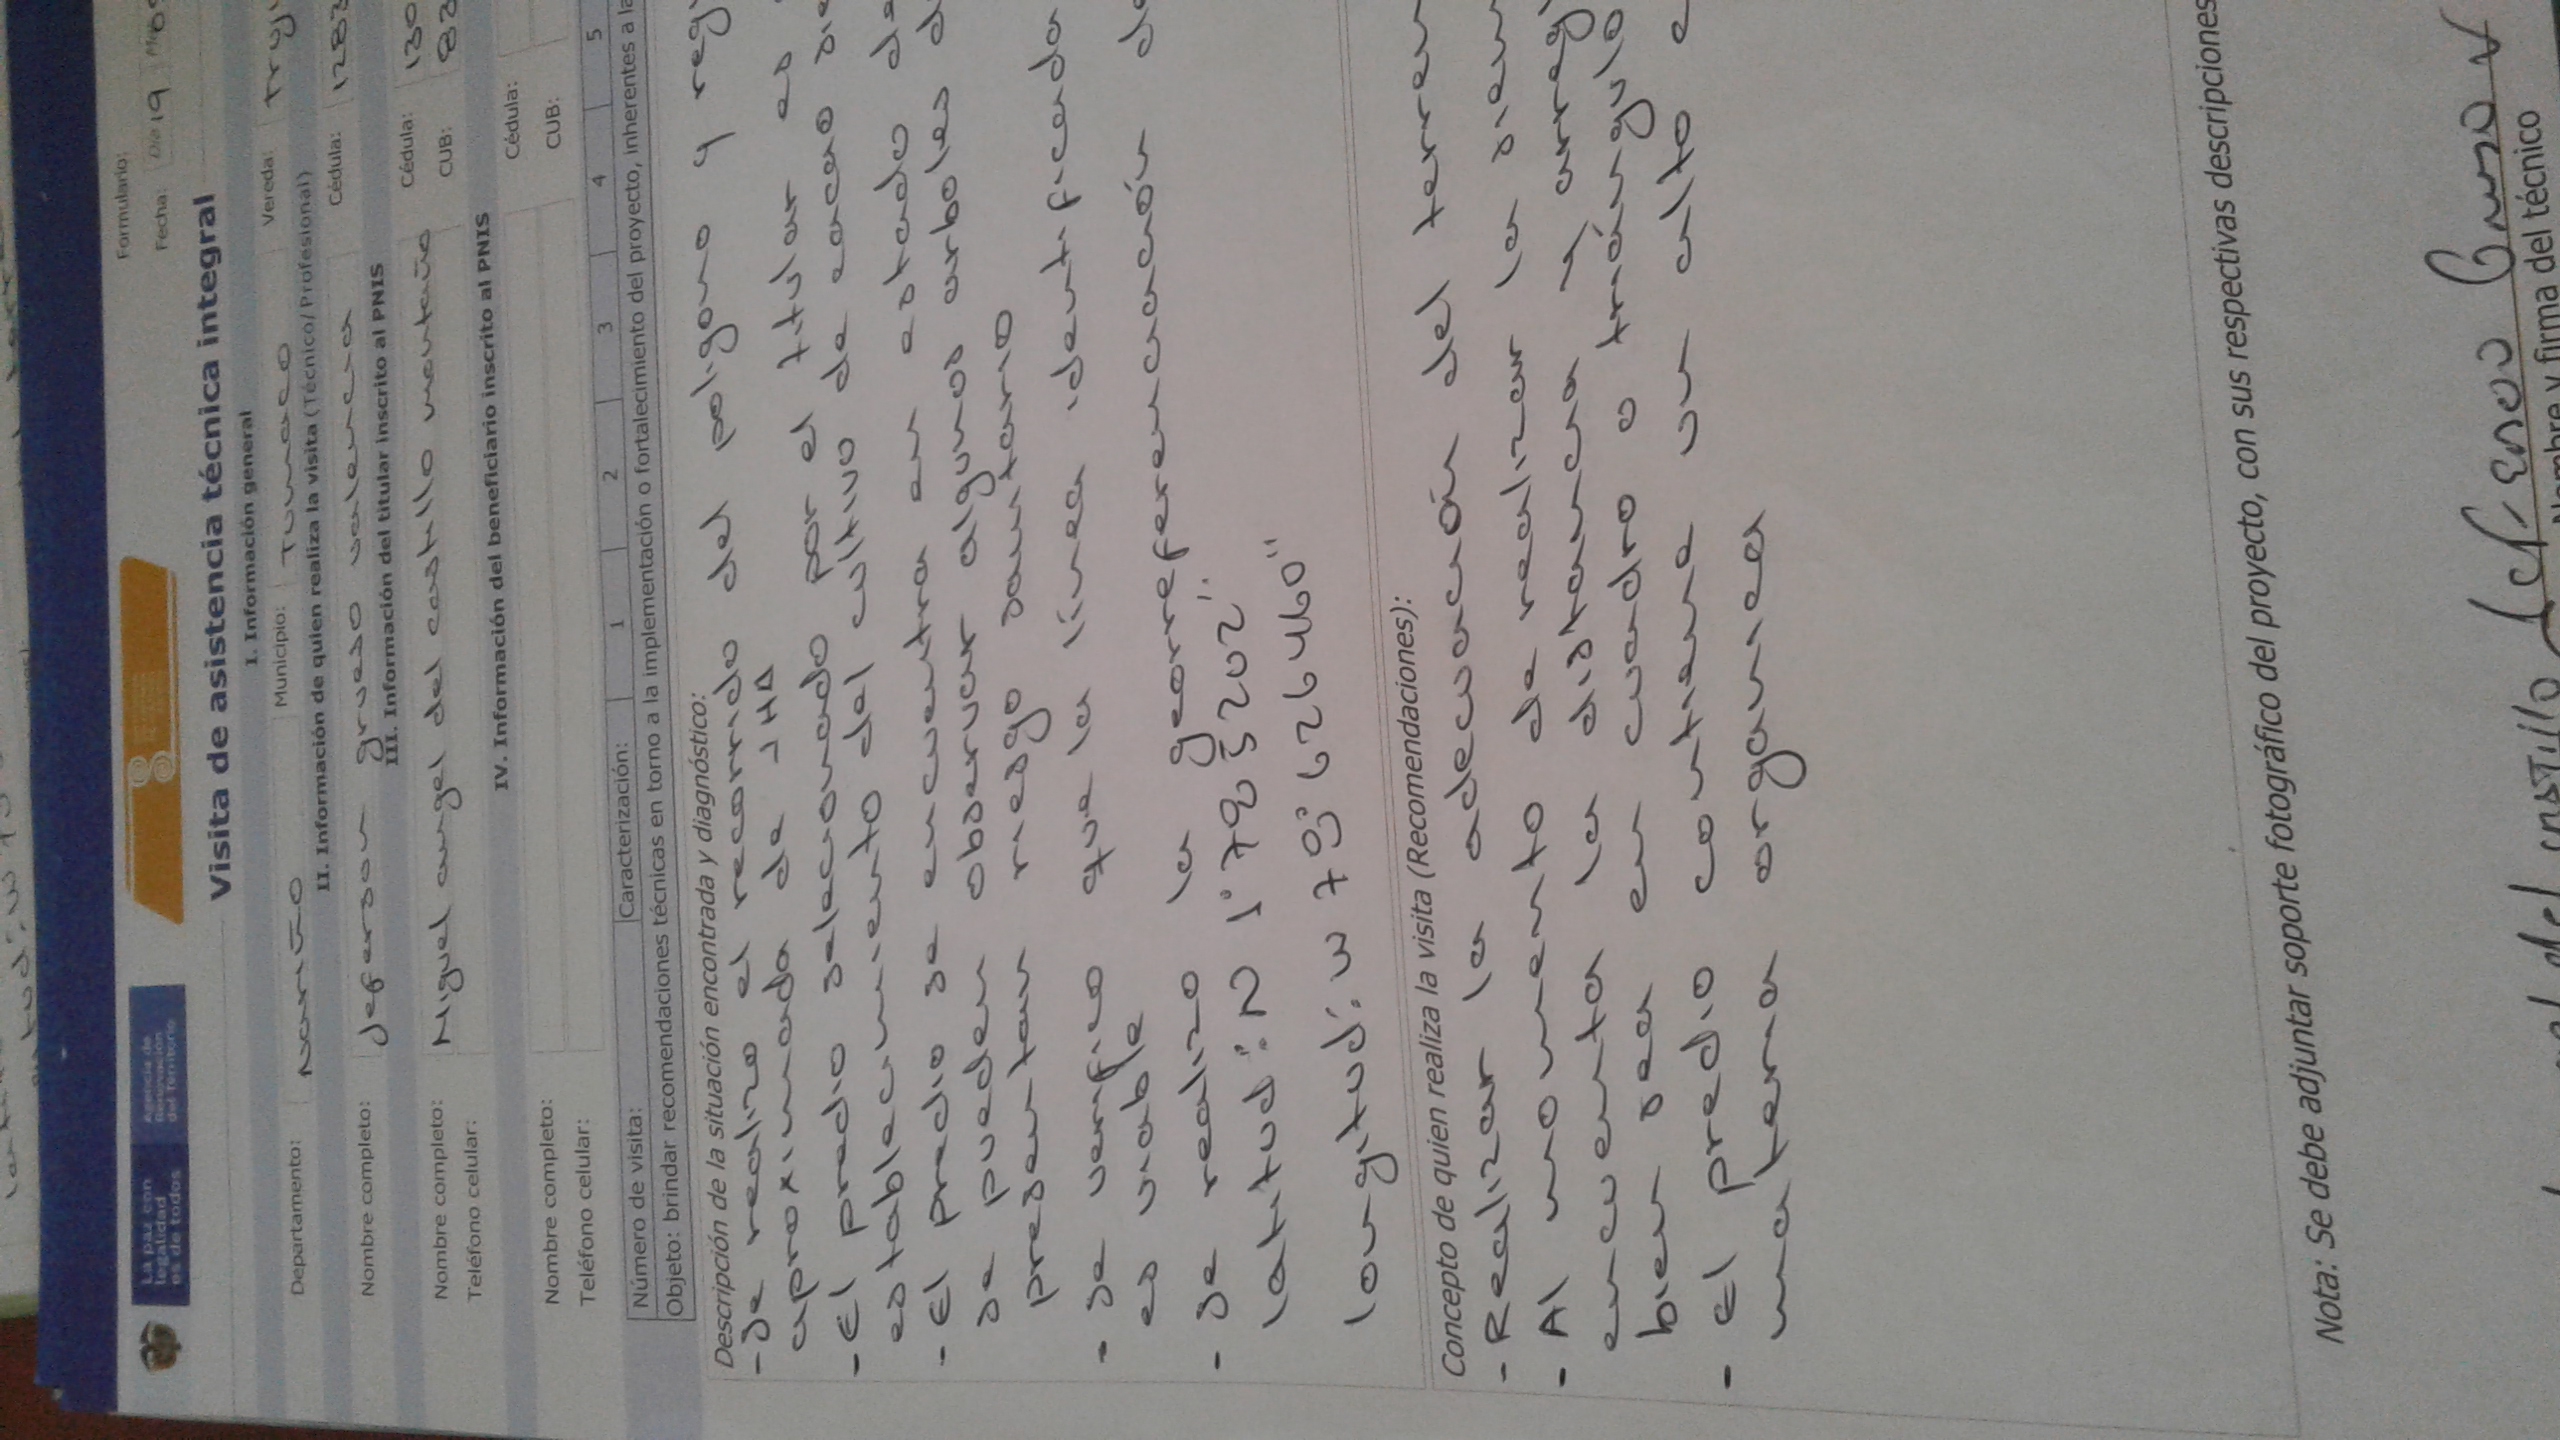 La paz con
legalidad
es de todos
Agencia de
Renovación
del Territorio
Formulario:
Fecha: Día 19
Visita de asistencia técnica integral
I. Información general
Departamento: Nariño Municipio: Tumaco Vereda:
II. Información de quien realiza la visita (Técnico/Profesional)
Nombre completo: Jeferson grueso valencia Cédula: 1283
III. Información del titular inscrito al PNIS
Nombre completo: Miguel angel del castillo montaño Cédula: 130
Teléfono celular: CUB: 83
IV. Información del beneficiario inscrito al PNIS
Nombre completo: Cédula:
Teléfono celular: CUB:
Número de visita: Caracterización: 1 2 3 4 5
Objeto: brindar recomendaciones técnicas en torno a la implementación o fortalecimiento del proyecto, inherentes a la
Descripción de la situación encontrada y diagnóstico:
- se realizo el recorrido del poligono y
aproximada de 1HA
- El predio seleccionado por el titular es
establecimiento del cultivo de cacao
- El predio se encuentra en estado de
se pueden observar algunos arboles
presentan riesgo sanitario
- se verifico que la línea identificada
es viable
- se realizo la georreferenciación de
latitud: N 1° 785202"
longitud: W 79° 626460"
Concepto de quien realiza la visita (Recomendaciones):
- Realizar la adecuación del
- Al momento de realizar la
encuenta la distancia y
bien sea en cuadro o triángulo
- El predio contiene un alto
materia organica
Nota: Se debe adjuntar soporte fotográfico del proyecto, con sus respectivas descripciones
del castillo
Nombre y firma del técnico